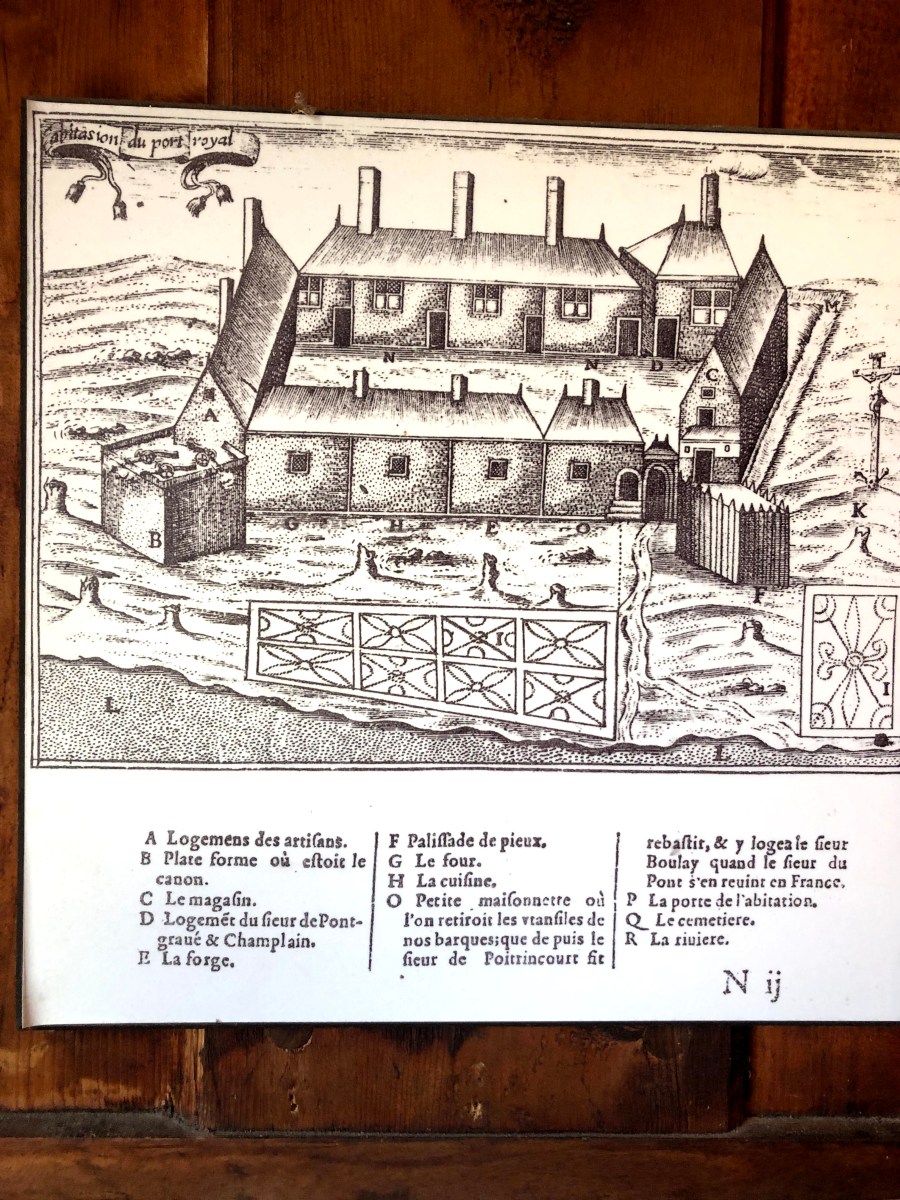 abitasion du port royal
M
N N D
C
A
K
B
G H E O
F
I
I
L
L
A Logemens des artiſans.
B Plate forme où eſtoit le
canon.
C Le magaſin.
D Logemẽt du ſieur de Pont-
graué & Champlain.
E La forge.
F Paliſſade de pieux.
G Le four.
H La cuiſine.
O Petite maiſonnette où
l'on retiroit les vtanſiles de
nos barques; que de puis le
ſieur de Poitrincourt fit
rebaſtit, & y logea le ſieur
Boulay quand le ſieur du
Pont s'en reuint en France.
P La porte de l'abitation.
Q Le cemetiere.
R La riuiere.
N ij